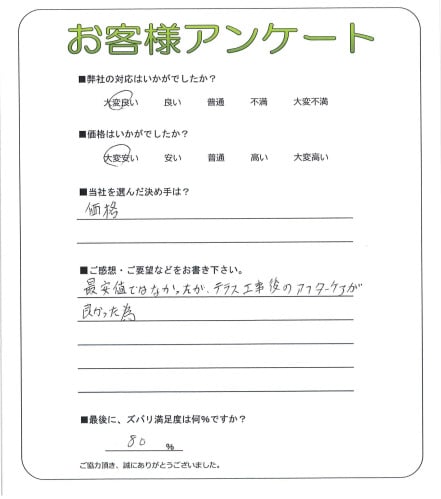 お客様アンケート
■弊社の対応はいかがでしたか？
大変良い 良い 普通 不満 大変不満
■価格はいかがでしたか？
大変安い 安い 普通 高い 大変高い
■当社を選んだ決め手は？
価格
■ご感想・ご要望などをお書き下さい。
最安値ではなかったが、テラス工事後のアフターケアが
良かった為
■最後に、ズバリ満足度は何%ですか？
80 %
ご協力頂き、誠にありがとうございました。